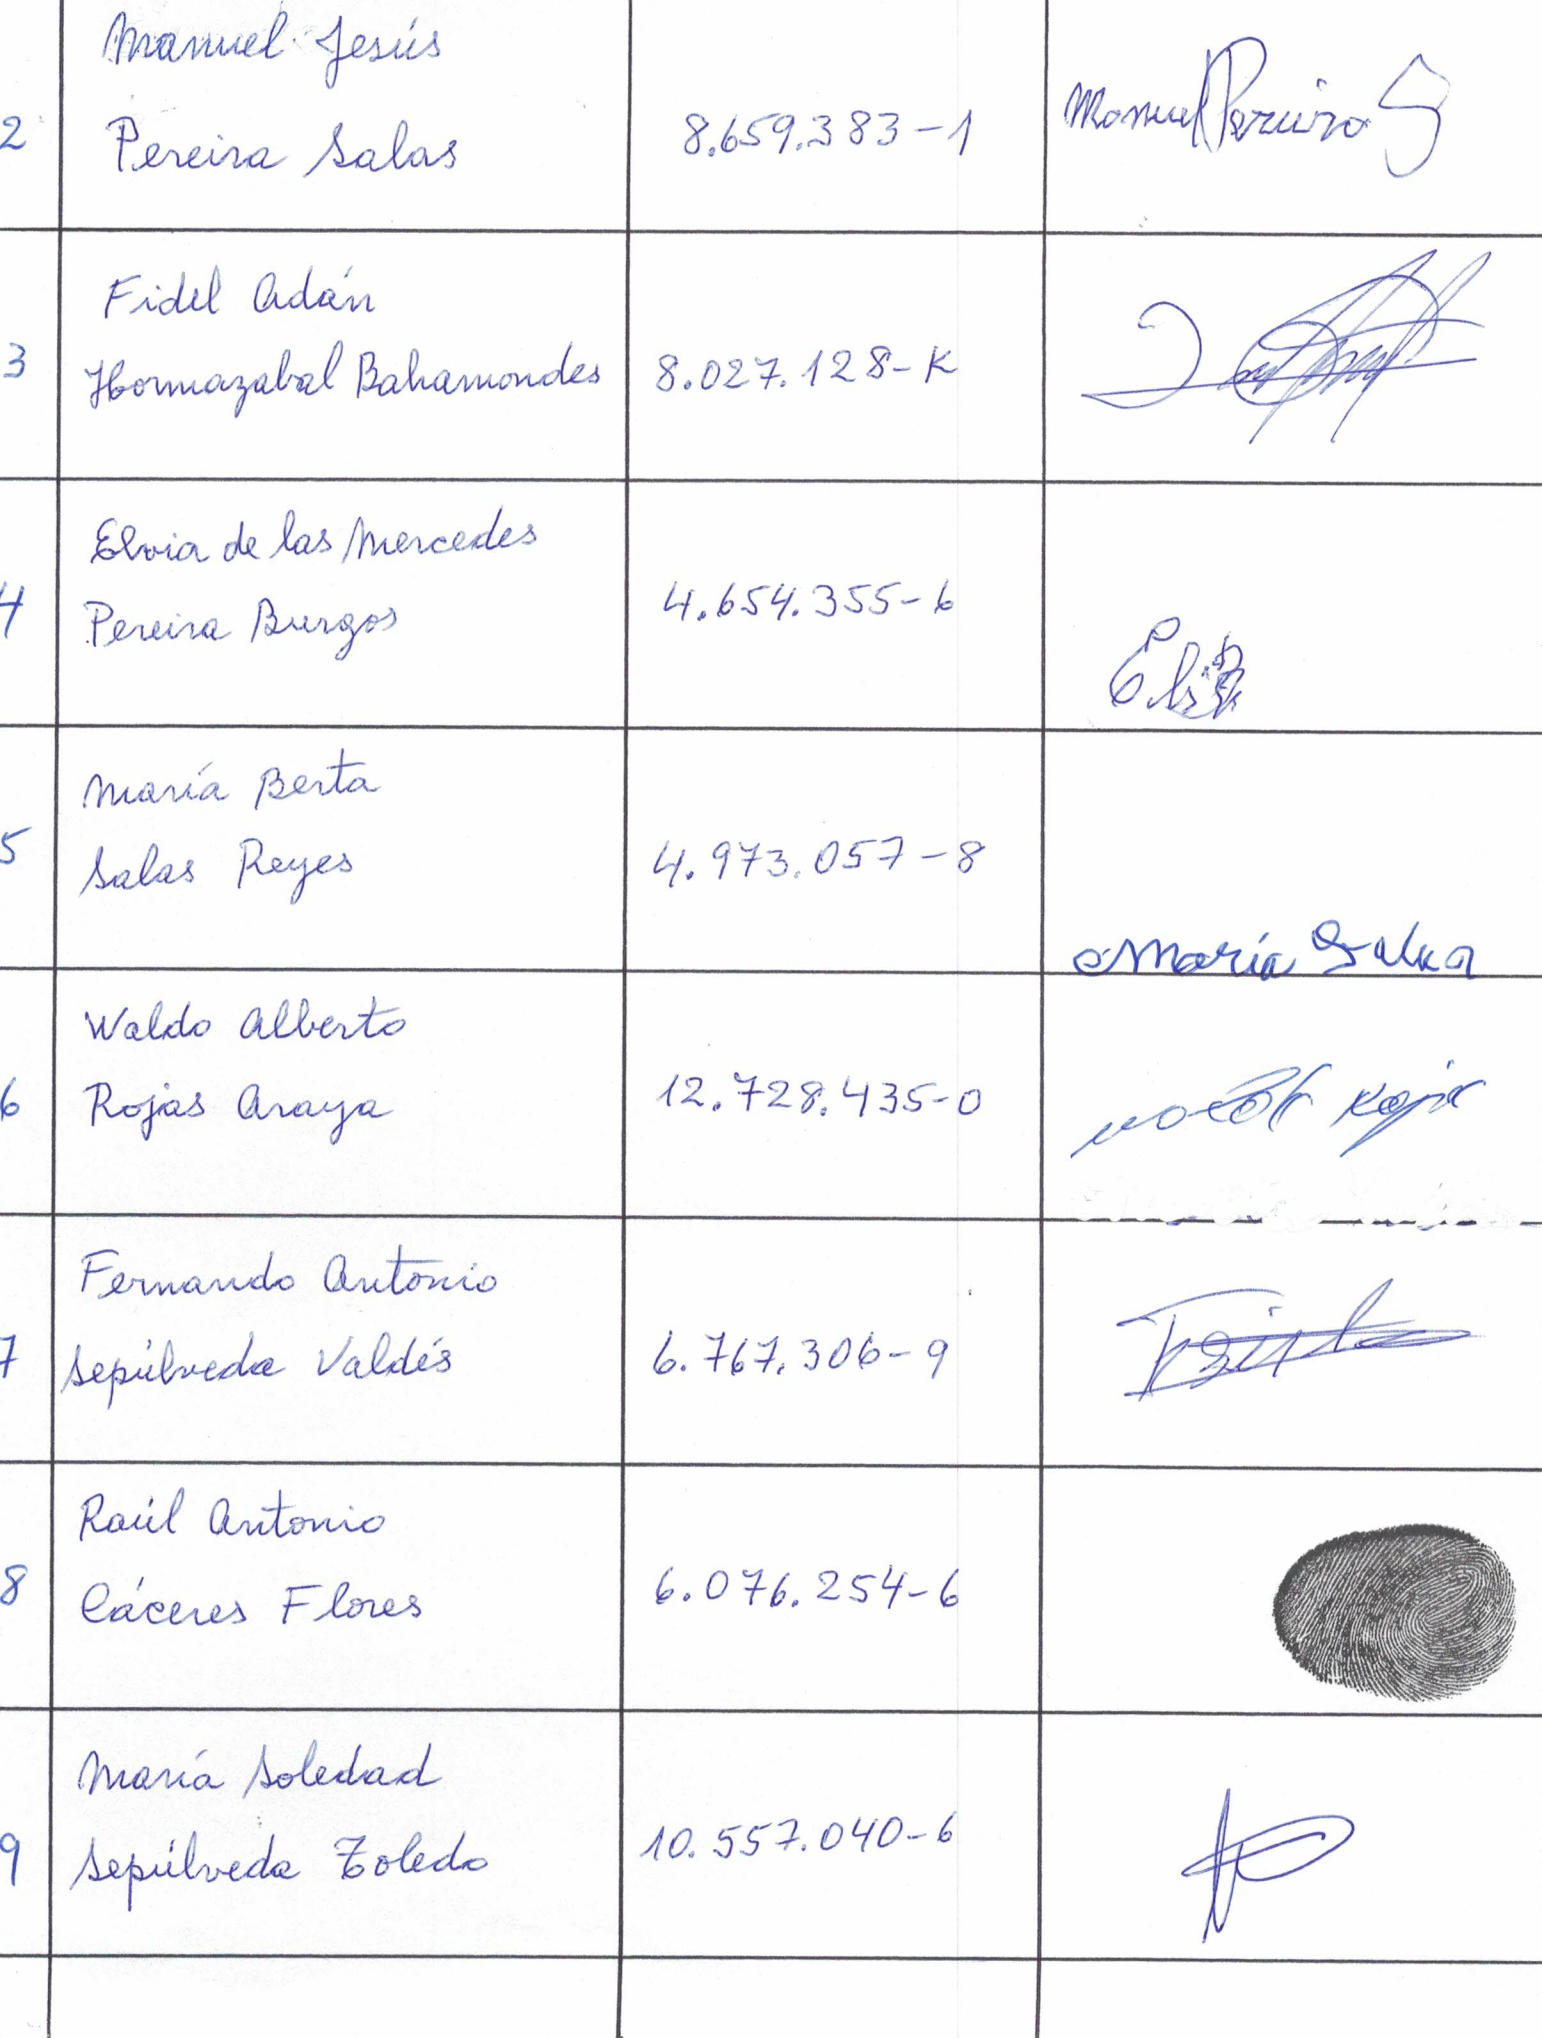 Manuel Jesús
2 Pereira Salas 8.659.383-1 Manuel Pereira S
Fidel Adán
3 Hormazabal Bahamondes 8.027.128-K
Elvia de las Mercedes
4 Pereira Burgos 4.654.355-6
María Berta
5 Salas Reyes 4.973.057-8
María Salas
Waldo Alberto
6 Rojas Araya 12.728.435-0
Fernando Antonio
7 Sepúlveda Valdés 6.767.306-9
Raúl Antonio
8 Cáceres Flores 6.076.254-6
María Soledad
9 Sepúlveda Toledo 10.557.040-6